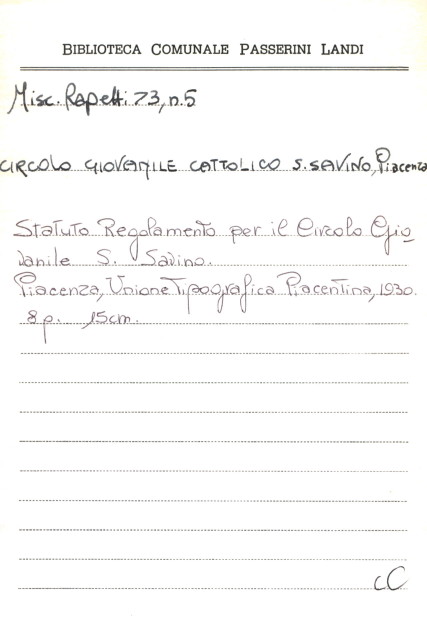 BIBLIOTECA COMUNALE PASSERINI LANDI
Misc. Rapetti 73, n.5
CIRCOLO GIOVANILE CATTOLICO S. SAVINO, Piacenza
Statuto Regolamento per il Circolo Gio
vanile S. Savino.
Piacenza, Unione Tipografica Piacentina, 1930.
8 p. 15cm.
cC